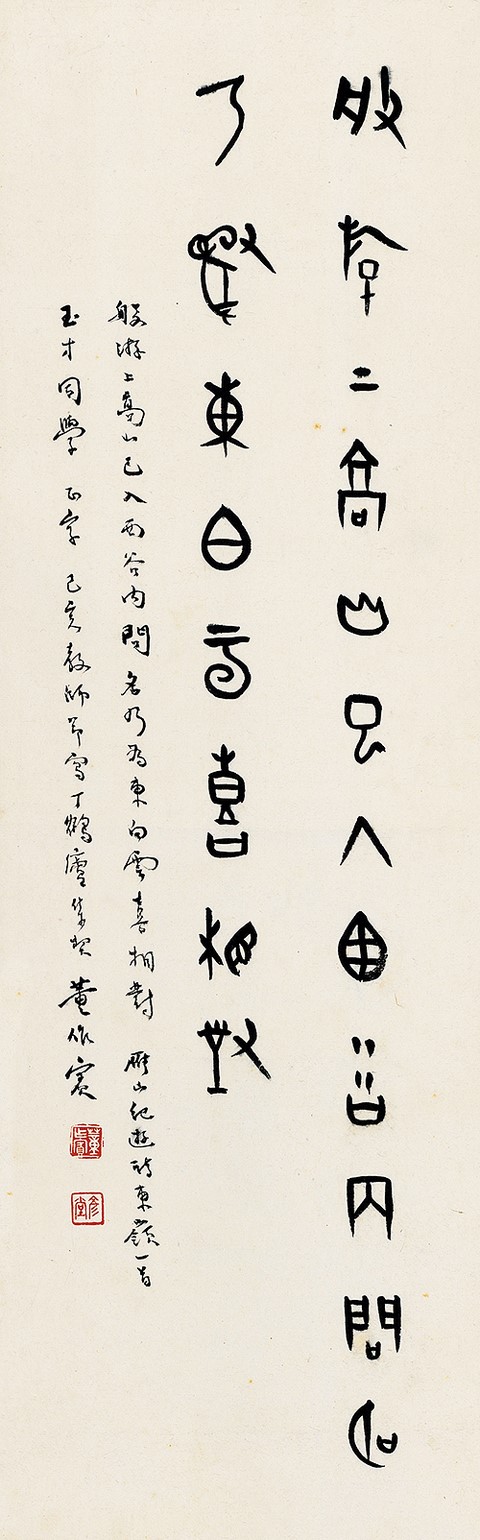 般游上高山已入西谷内問名
乃為東白雲喜相對
般游上高山已入西谷内問名乃為東白雲喜相對 雁山紀遊詩東嶺一首
玉才同學正字 己亥教師節寫丁鶴廬集契 董作賓
董作賓
彥堂